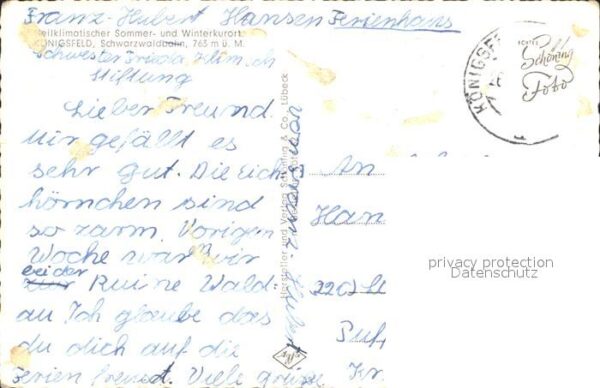 Franz-Hubert Hansen Ferienhaus
Heilklimatischer Sommer- und Winterkurort
KÖNIGSFELD, Schwarzwaldbahn, 763 m ü. M.
Schwester Frieda Klimsch
Stiftung
Lieber Freund.
Mir gefällt es
sehr gut. Die Eich
hörnchen sind
so zarm. Vorigen
Woche war wir
bei der
Ruine Wald-
au Ich glaube das
du dich auf die
Ferien freust. Viele grüße
Hersteller und Verlag Schöning & Co., Lübeck
KÖNIGSFE
ECHTES
Schöning
Foto
An
Han
Fr.
privacy protection
Datenschutz